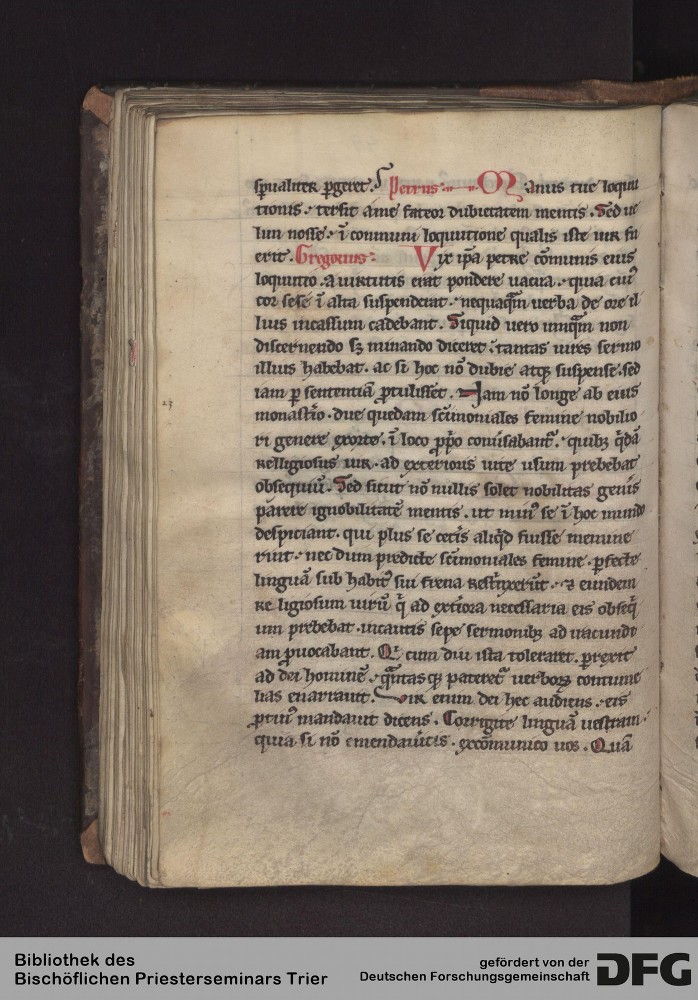 sp̄ualit̄ ꝑgeret. Petrus: Manus tue loqutu
tionis. tersit a me fateor dubietatem mentis. Sed ue
lim nosse. ī communi loquutione qualis iste uir fu
erit. Gregorius: Vix ip̄a petre cōmunis eius
loqutio. a uirtutis erat pondere uacua. quia cui᷒
cor sese ī alta suspenderat. nequaqᷓm uerba de ore il
lius incassum cadebant. Siquid uero umqᷓm non
discernendo sꝫ minando diceret. tantas uires sermo
illius habebat. ac si hoc nō dubie atqꝫ suspense. sed
iam ꝑ sententiā ꝓtulisset. Nam nō longe ab eius
23
monastīo. due quedam sc̄imoniales femine nobilio
ri genere exorte. ī loco ꝓp̄o conūsabant᷑. quibꝫ q̄dā
relligiosus uir. ad exterioris uite usum prebebat
obsequiū. Sed sicut nō nullis solet nobilitas gen̄is
parere ignobilitatē mentis. ut min᷒ se ī hoc mundo
despiciant. qui plus se cet̄is aliq̄d fuisse memine
rint. nec dum predicte sc̄imoniales femine. ꝑfecte
linguā sub habit᷒ sui frena restrīxer̄t. & eundem
re ligiosum uirū q̄ ad ext̄iora necessaria eis obseq̄
um prebebat. incautis sepe sermonibꝫ ad iracundi
am ꝓuocabant. Qⁱ cum diu ista toleraret. perrexit
ad dei hominē. qᷓntasqꝫ pateret᷑ uerboꝝ contume
lias enarrauit. Vir enim dei hec audiens. eis
ꝓtin᷒ mandauit dicens. Corrigite linguā uestram.
quia si nō emendau̅itis. excōmunico uos. Quā
Bibliothek des
Bischöflichen Priesterseminars Trier
gefördert von der
Deutschen Forschungsgemeinschaft
DFG